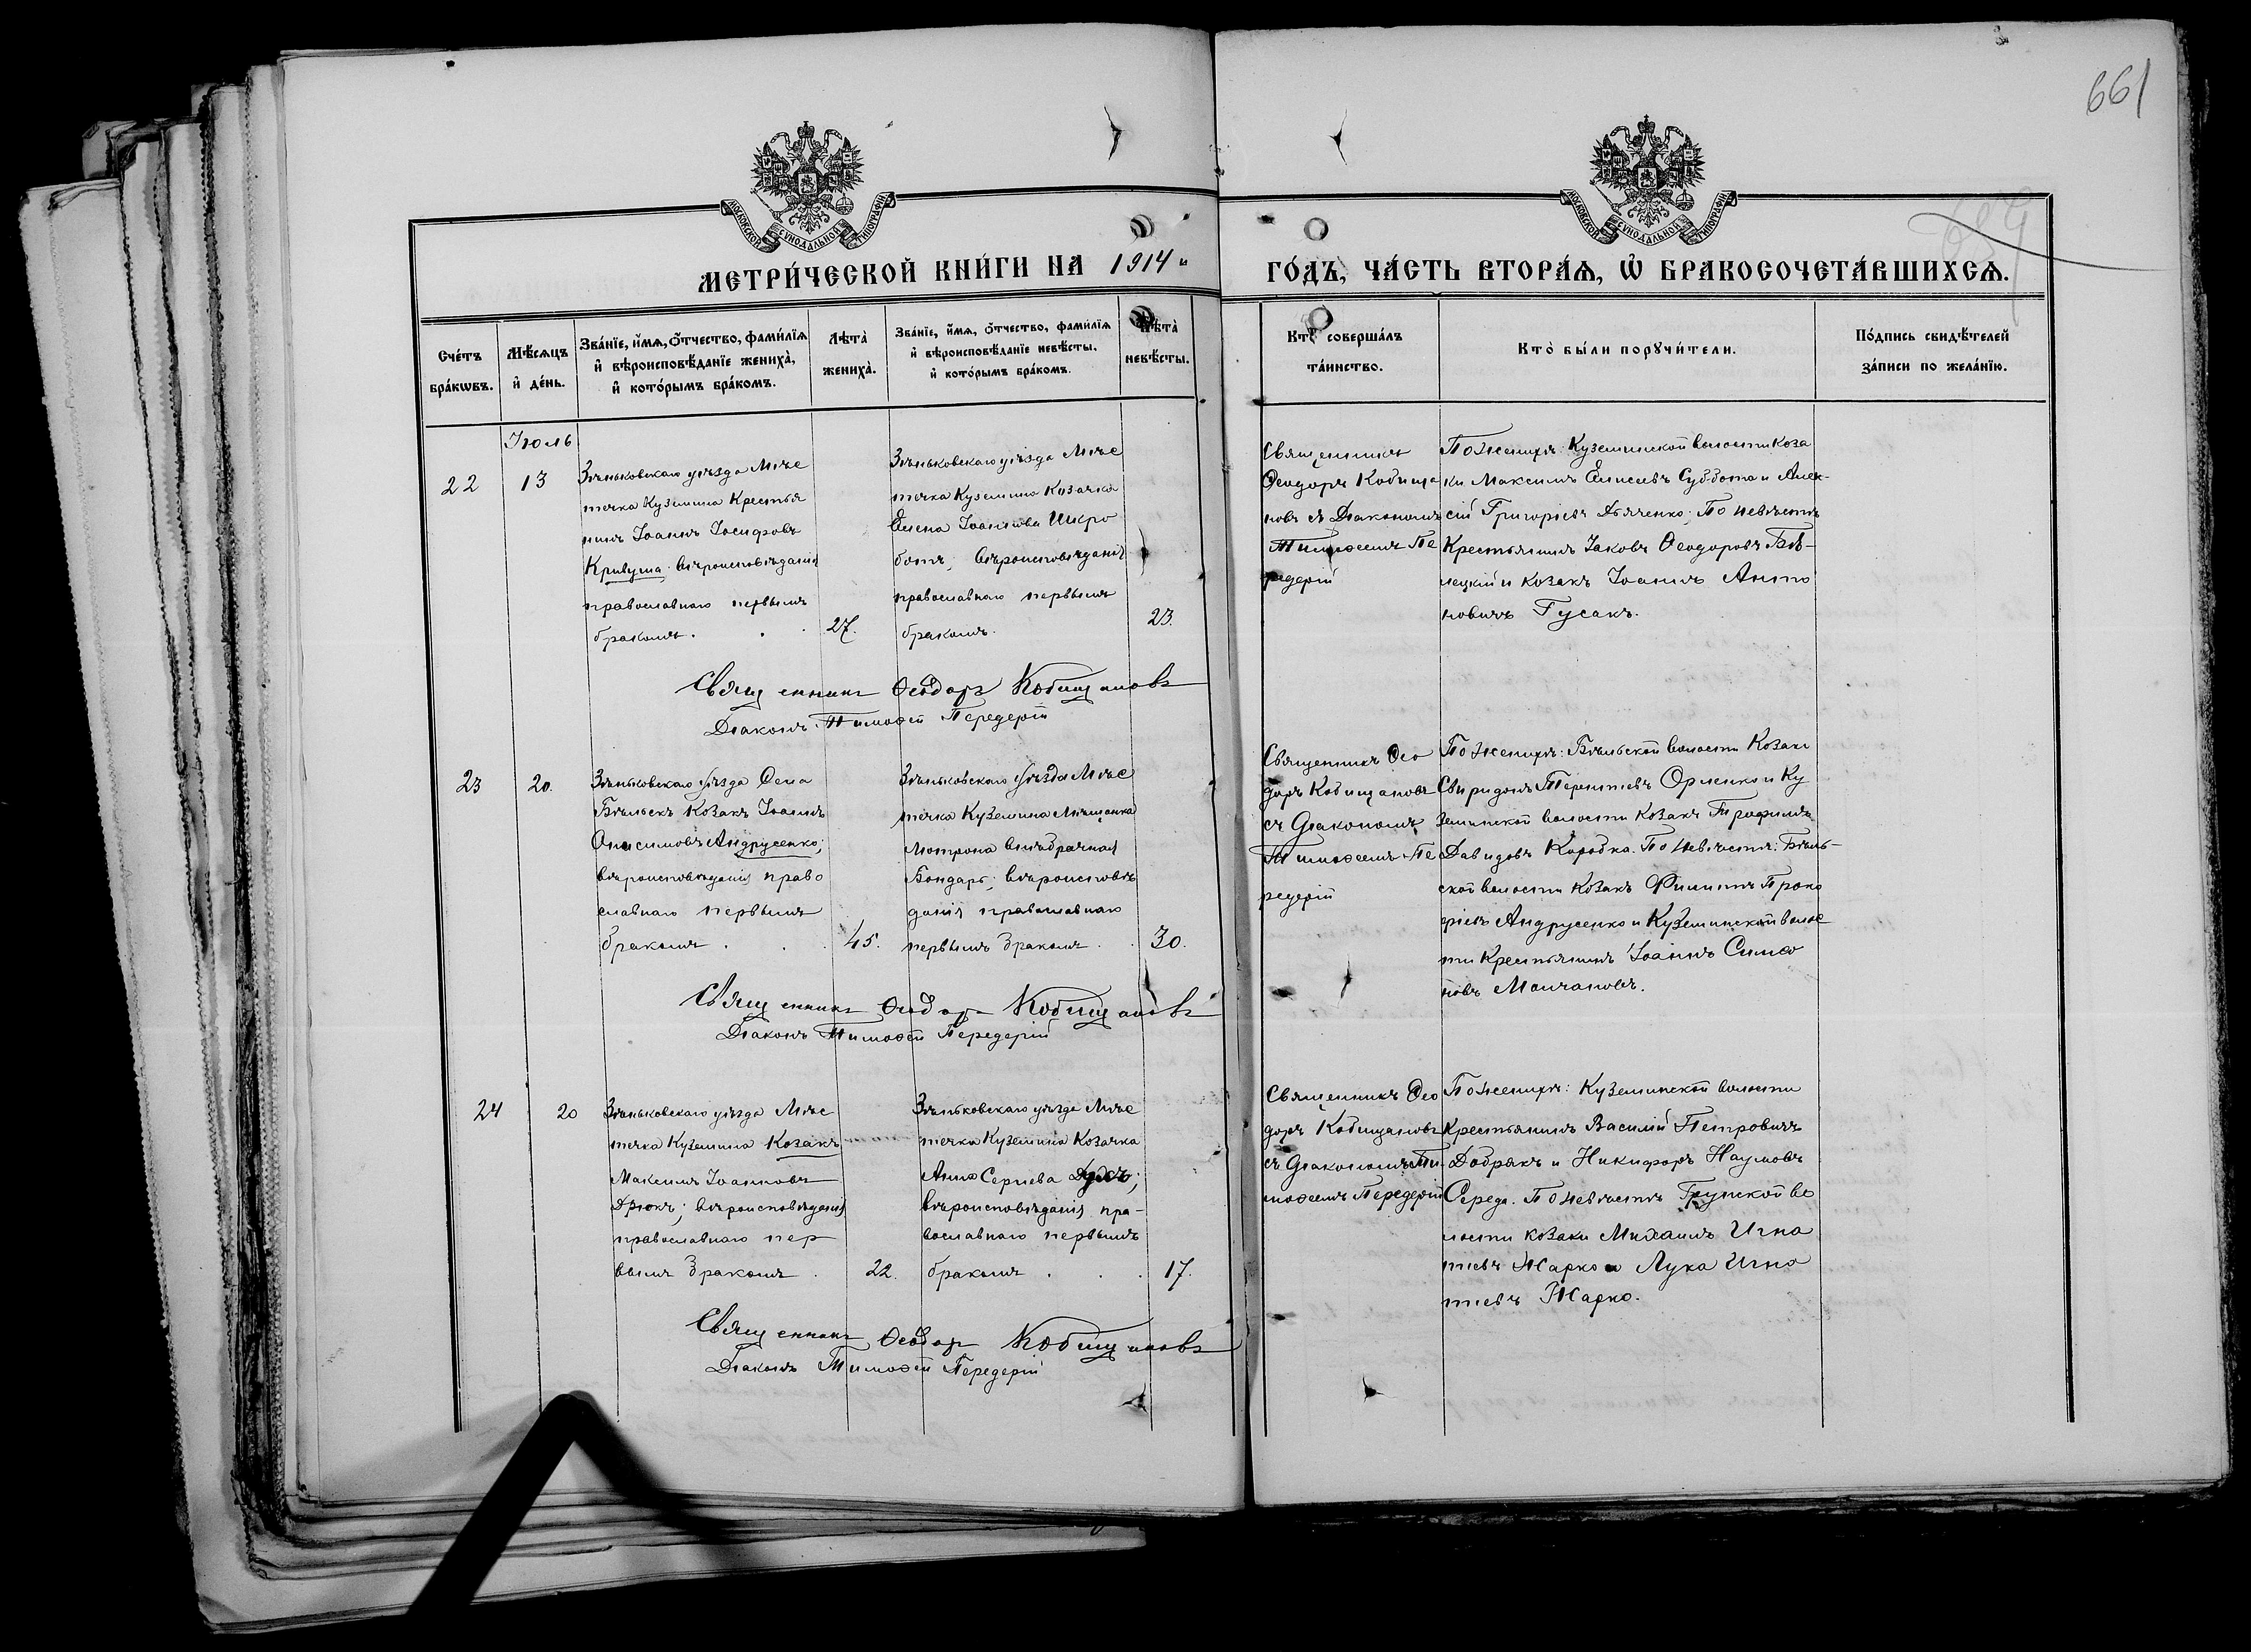 661
МОСКОВСКОЙ СѴНОДАЛЬНОЙ ТИПОГРАФІИ
МОСКОВСКОЙ СѴНОДАЛЬНОЙ ТИПОГРАФІИ
МЕТРИ́ЧЕСКОЙ КНИ́ГИ НА 1914 й
ГО́ДЪ, ЧА́СТЬ ВТОРА́Ѧ, Ѽ БРАКОСОЧЕТА́ВШИХСѦ.
Сче́тъ
бра́кѡвъ.
Мѣ́сѧцъ
и҆ де́нь.
Зва́нїе, и҆́мѧ, ѻ҆́тчество, фами́лїѧ
и҆ вѣроисповѣ́данїе жениха̀,
и҆ кото́рымъ бра́комъ.
Лѣта̀
жениха̀.
Зва́нїе, и҆́мѧ, ѻ҆́тчество, фами́лїѧ
и҆ вѣроисповѣ́данїе невѣ́сты,
и҆ кото́рымъ бра́комъ.
Лѣта̀
невѣ́сты.
Кто̀ соверша́лъ
та́инство.
Кто̀ бы́ли порꙋчи́тели.
По́дпись свидѣ́телей
за́писи по жела́нїю.
Іюль
22
13
Зѣньковскаго уѣзда Мѣс
течка Куземина Крестья
нинъ Іоаннъ Іосифовъ
Кривуша вѣроисповѣданія
православнаго первымъ
бракомъ.
27.
Зѣньковскаго уѣзда Мѣс
течка Куземина Козачка
Елена Іоаннова Шкро
ботъ; вѣроисповѣданія
православнаго первымъ
бракомъ.
23.
Священникъ
Ѳеодоръ Кобища
новъ съ Діакономъ
Тимоѳеемъ Пе
редерій
По женихѣ: Куземинской волости Коза
ки Максимъ Елисеевъ Суббота и Алек-
сій Григоріевъ Дьяченко; По невѣстѣ
Крестьянинъ Іаковъ Ѳеодоровъ Бѣ-
лецкій и козакъ Іоаннъ Анто
новичъ Гусакъ.
Священникъ Ѳеодоръ Кобищановъ
Діаконъ Тимоѳей Передерій
23
20.
Зѣньковскаго уѣзда Села
Бѣльскъ Козакъ Іоаннъ
Онисимовъ Андрусенко;
вѣроисповѣданія право
славнаго первымъ
бракомъ
45.
Зѣньковскаго уѣзда Мѣс
течка Куземина Мѣщанка
Мотрона внѣбрачная
Бондарь; вѣроисповѣ
данія православнаго
первымъ бракомъ
30.
Священникъ Ѳео
доръ Кобищановъ
съ Діакономъ
Тимоѳеемъ Пе
редерій
По женихѣ: Бѣльской волости Козаки
Свиридонъ Терентіевъ Орленко и Ку
земинской волости Козакъ Трофимъ
Давидовъ Коробка. По невѣстѣ: Бѣль-
ской волости Козакъ Филиппъ Проко
фіевъ Андрусенко и Куземинской волос
ти Крестьянинъ Іоаннъ Симео
новъ Молчановъ.
Священникъ Ѳеодоръ Кобищановъ
Діаконъ Тимоѳей Передерій
24
20
Зѣньковскаго уѣзда Мѣс
течка Куземина Козакъ
Максимъ Іоанновъ
Дрюкъ; вѣроисповѣданія
православнаго пер
вымъ бракомъ
22.
Зѣньковскаго уѣзда Мѣс
течка Куземина Козачка
Анна Сергіева
вѣроисповѣданія пра-
вославнаго первымъ
бракомъ
17.
Священникъ Ѳео
доръ Кобищановъ
съ Діакономъ Ти
моѳеемъ Передерій
По женихѣ: Куземинской волости
Крестьянинъ Василій Петровичъ
Добрякъ и Никифоръ Наумовъ
Середа. По невѣстѣ Грунской во
лости козаки Михаилъ Игна
тіевъ Жарко и Лука Игна
тіевъ Жарко.
Священникъ Ѳеодоръ Кобищановъ
Діаконъ Тимоѳей Передерій